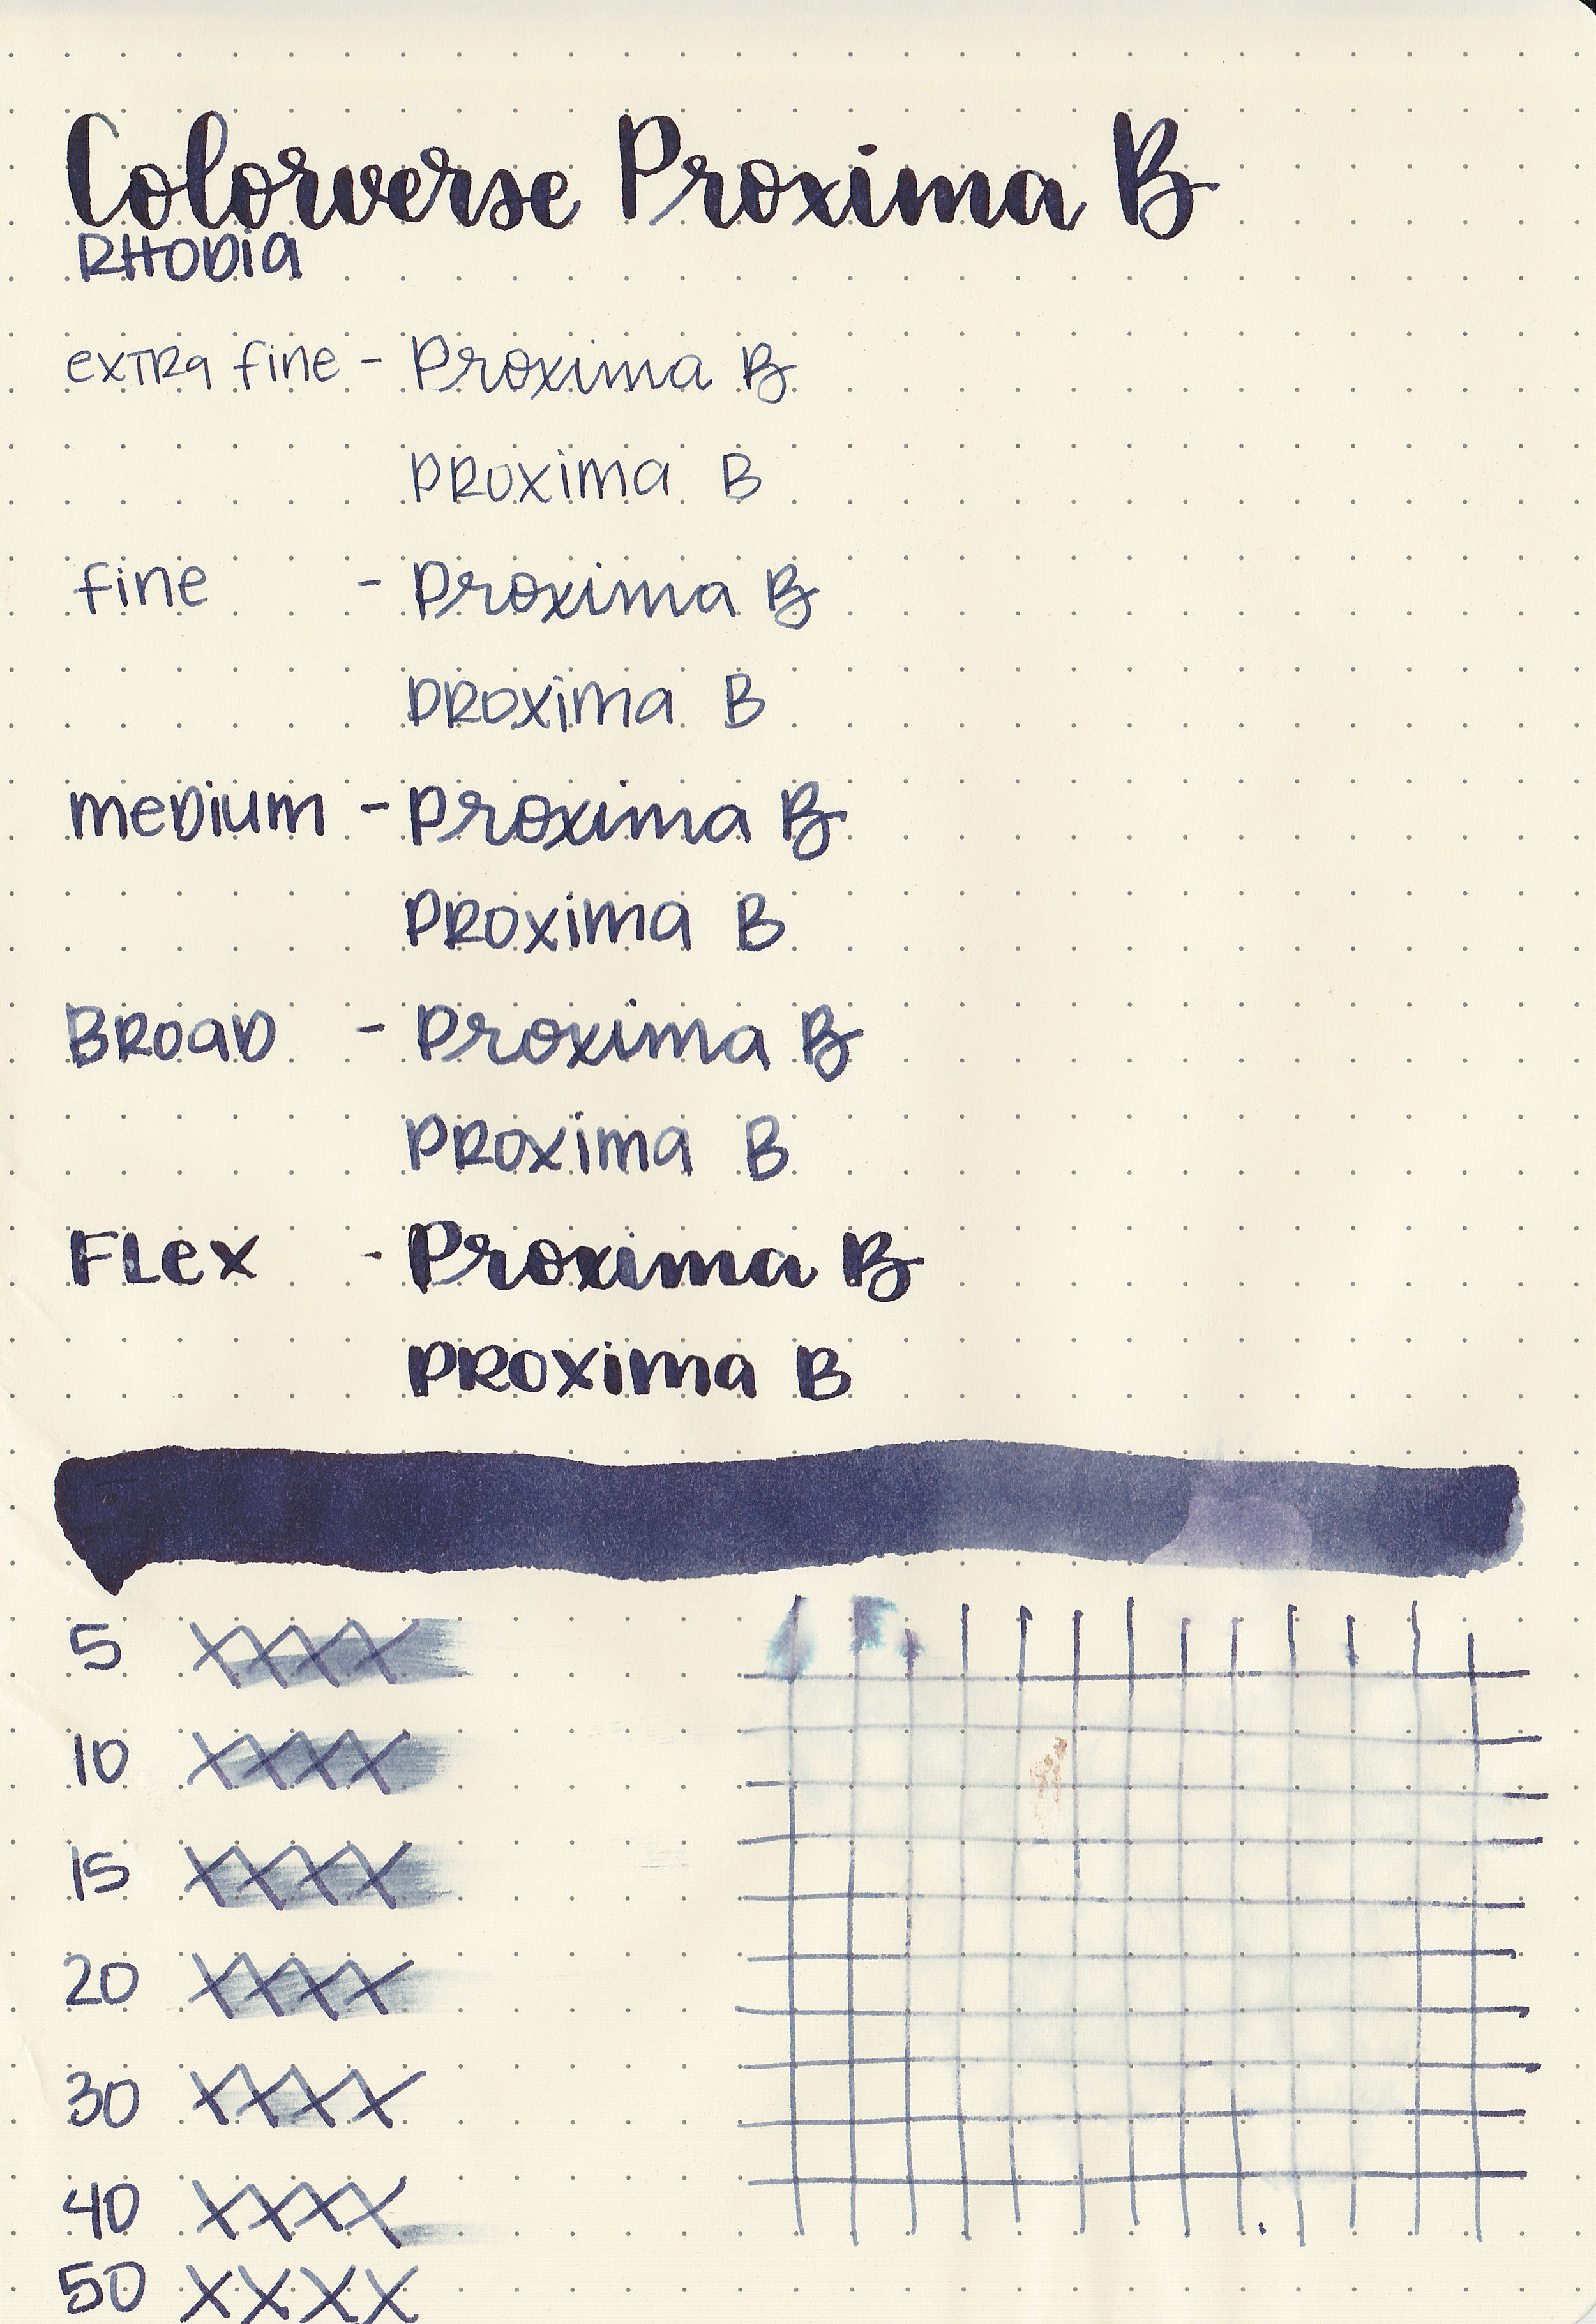 Colorverse Proxima B
RHODIA
extra fine - Proxima B
Proxima B
fine - Proxima B
Proxima B
medium - Proxima B
Proxima B
Broad - Proxima B
Proxima B
Flex - Proxima B
Proxima B
5 XXXX
10 XXXX
15 XXXX
20 XXXX
30 XXXX
40 XXXX
50 XXXX